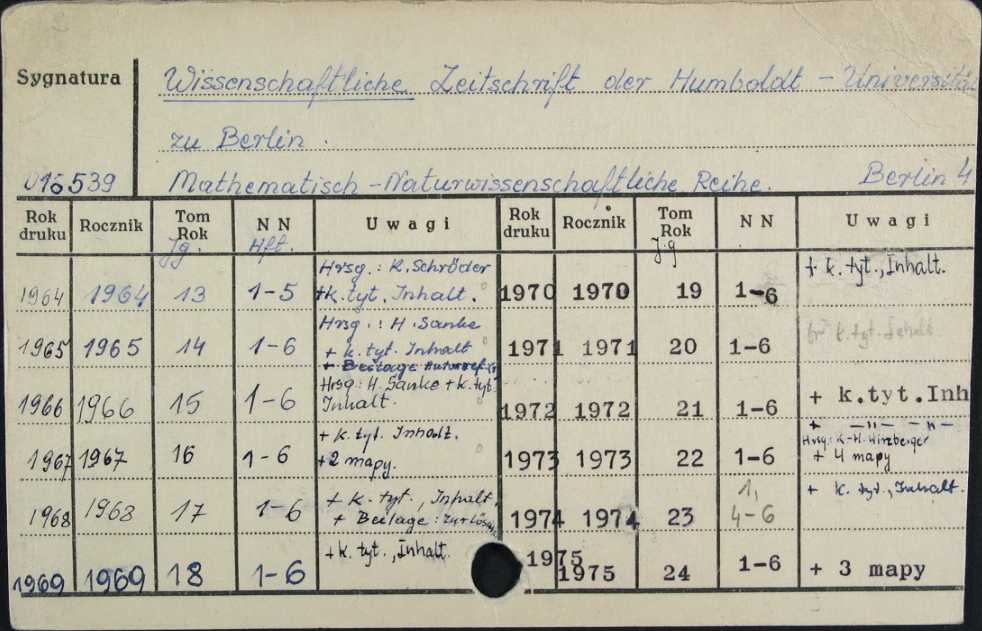 Sygnatura
Wissenschaftliche Zeitschrift der Humboldt - Universität
zu Berlin.
016539
Mathematisch-Naturwissenschaftliche Reihe. Berlin 4
Rok druku Rocznik Tom Rok N N Uwagi Rok druku Rocznik Tom Rok N N Uwagi
Jg. Hft. Jg
1964 1964 13 1-5 Hrsg.: K. Schröder + k. tyt. Inhalt. 1970 1970 19 1-6 + k. tyt., Inhalt.
1965 1965 14 1-6 Hrsg.: H. Sanke + k. tyt. Inhalt + Beilage 1971 1971 20 1-6 k. tyt.
1966 1966 15 1-6 Hrsg: H. Sanke + k. tyt. Inhalt. 1972 1972 21 1-6 + k.tyt.Inh
1967 1967 16 1-6 + k. tyt. Inhalt. + 2 mapy. 1973 1973 22 1-6 + —"— —"— Hrsg.: K.-H. Wirzberger + 4 mapy
1968 1968 17 1-6 + k. tyt., Inhalt. + Beilage: 1974 1974 23 1, 4-6 + k. tyt., Inhalt.
1969 1969 18 1-6 + k. tyt., Inhalt. 1975 1975 24 1-6 + 3 mapy